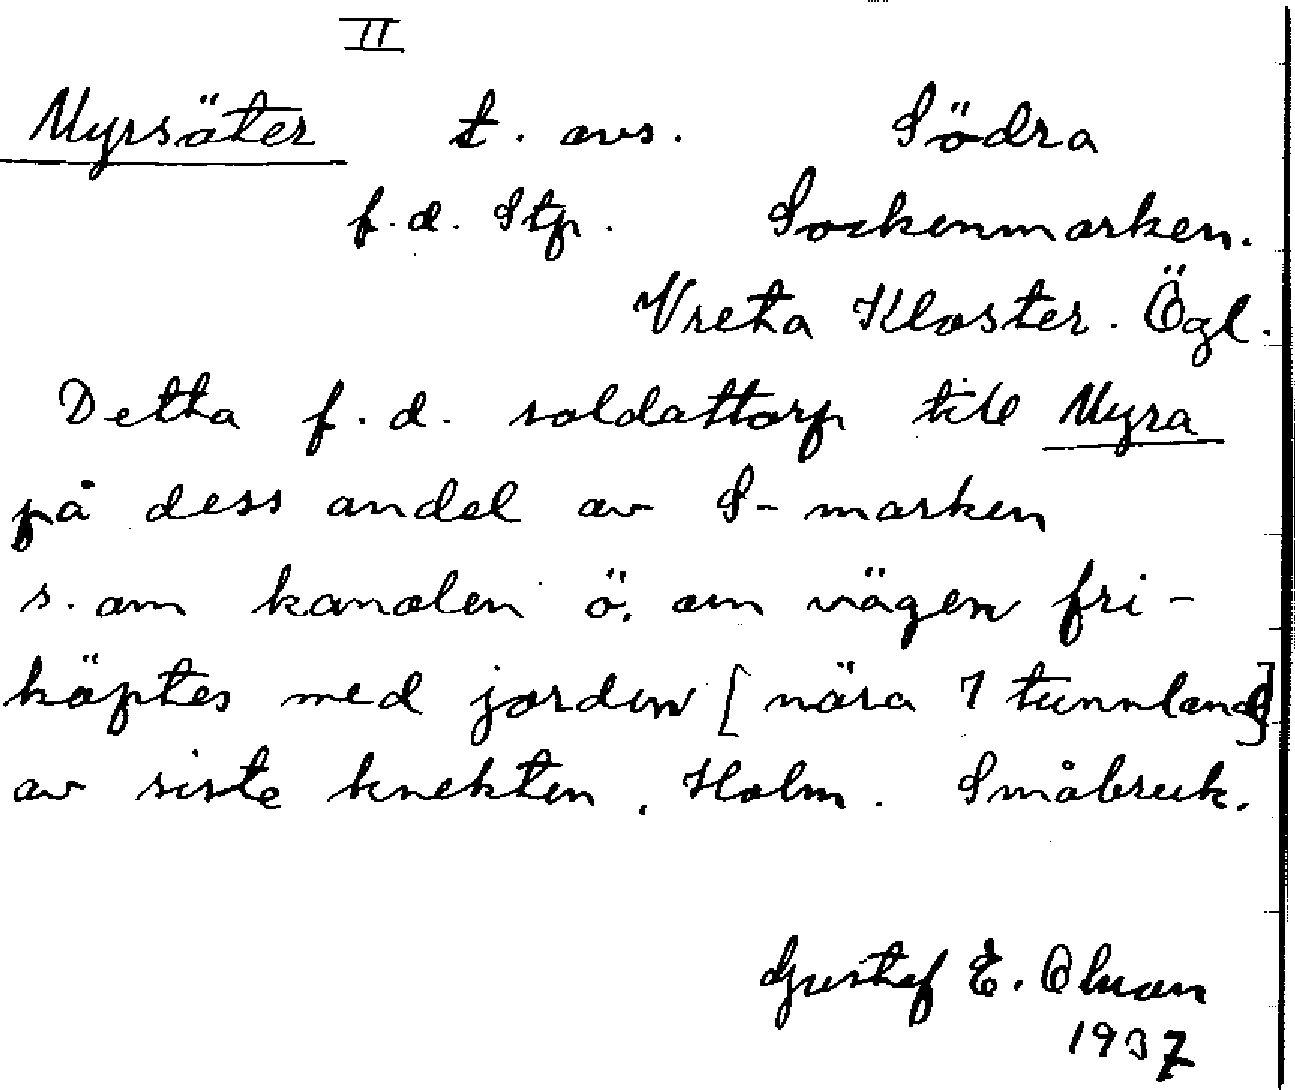 II
Myrsäter t. avs. Södra
f.d. Stp. Sockenmarken.
Vreta Kloster. Ögl.
Detta f.d. soldattorp till Myra
på dess andel av S-marken
s. om kanalen ö. om vägen fri-
köptes med jorden [nära 1 tunnland]
av siste knekten, Holm. Småbruk.
Gustef E. Olsson
1937